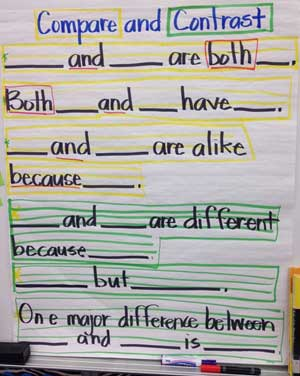 Compare and Contrast
____ and ____ are both ___.
Both ____ and ___ have ____.
____ and ____ are alike
because ____.
____ and ____ are different
because ____.
____ but ____.
One major difference between
____ and ____ is ____.